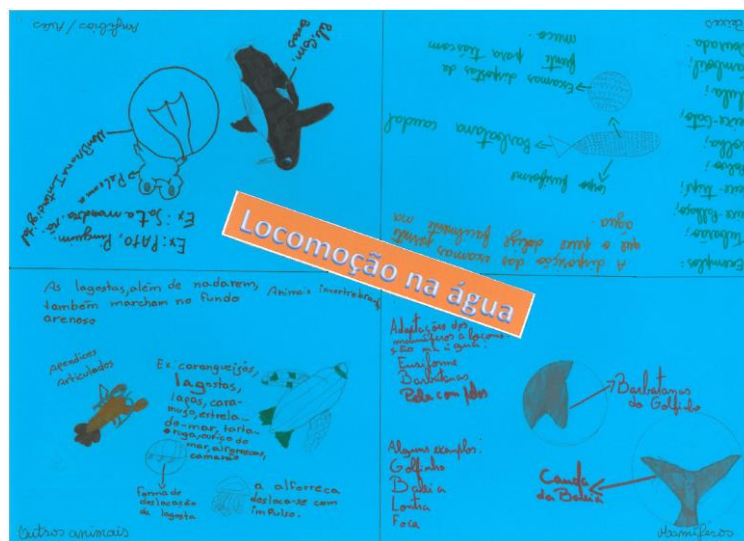 Locomoção na água
Anfíbios / Aves
Ex: Pato, Pinguim.
Ex: Salamandra, rã
Membrana Interdigital
Peixes
Exemplos:
Tubarão;
Dourada.
A disposição das escamas permite
que o peixe deslize facilmente na
água.
Corpo fusiforme
Barbatana caudal
Escamas dispostas da
frente para trás com
muco.
As lagostas, além de nadarem,
também marcham no fundo
arenoso
Animais invertebrados
Apendices
Articulados
Ex. caranguejos,
lagostas,
lapas, cara-
mujo, estrela-
do-mar, tarta-
ruga, ouriço do
mar, alforrecas,
camarão
Forma de
deslocação
da lagosta
a alforreca
desloca-se com
impulso.
Outros animais
Adaptações dos
mamíferos a locomo-
ção na água:
Fusiforme
Barbatanas
Pele com pêlos
Alguns exemplos:
Golfinho
Baleia
Lontra
Foca
Barbatanas
do Golfinho
Cauda
da Baleia
Mamíferos